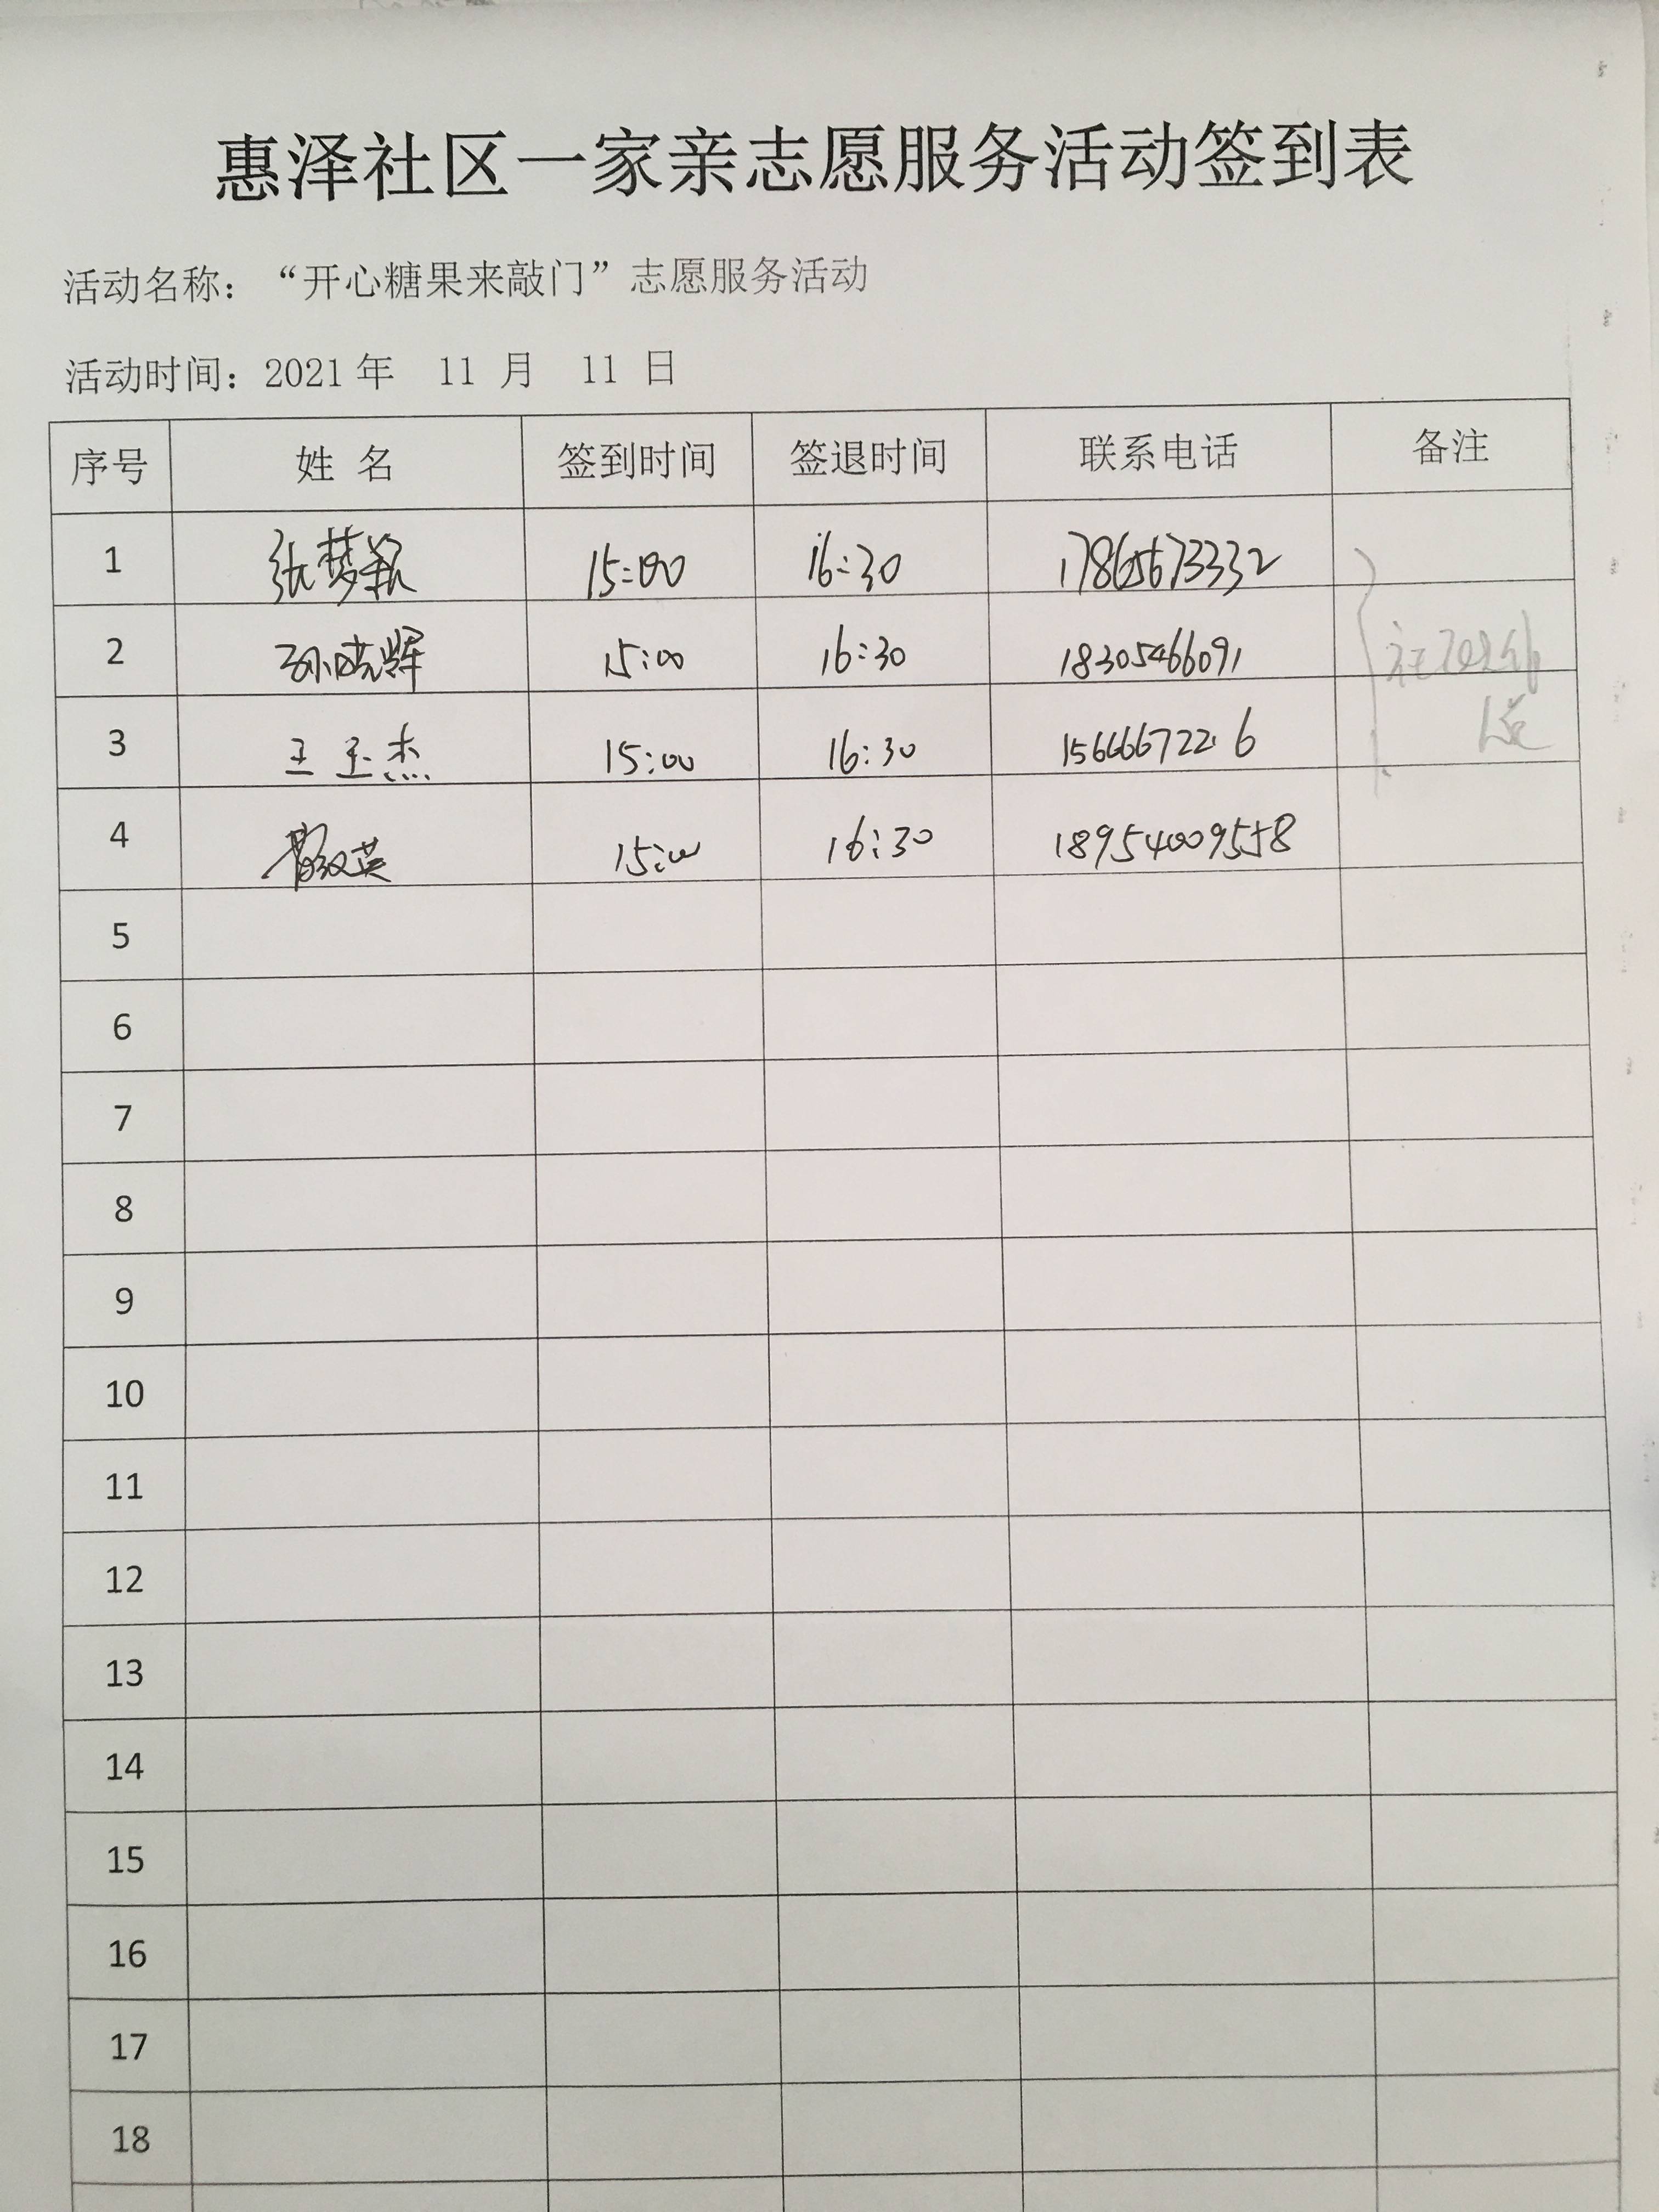 惠泽社区一家亲志愿服务活动签到表
活动名称：“开心糖果来敲门”志愿服务活动
活动时间：2021年 11 月 11 日
序号 姓 名 签到时间 签退时间 联系电话 备注
1 张梦颖 15:00 16:30 17865673332
2 孙晓辉 15:00 16:30 18305466091
3 王玉杰 15:00 16:30
4 15:00 16:30 18954009558
5
6
7
8
9
10
11
12
13
14
15
16
17
18